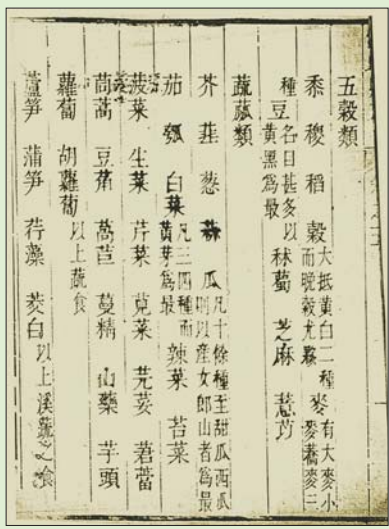 五穀類
黍 稷 稻 穀大抵黃白二種而晚穀尤夥 麥有大麥小麥蕎麥三
種 豆名目甚多以黃黑爲最 秫薥 芝麻 薏苡
蔬蓏類
芥 韮 葱 蒜 瓜凡十餘種至甜瓜西瓜則以産女郎山者爲最
茄 瓠 白菜凡三四種而黃芽爲最 辣菜 苦菜
菠菜 生菜 芹菜 莧菜 芫荽 莙薘
茼蒿 豆 萵苣 蔓精 山藥 芋頭
蘿蔔 胡蘿蔔以上蔬食
蘆笋 蒲笋 荇藻 茭白以上溪蔬之